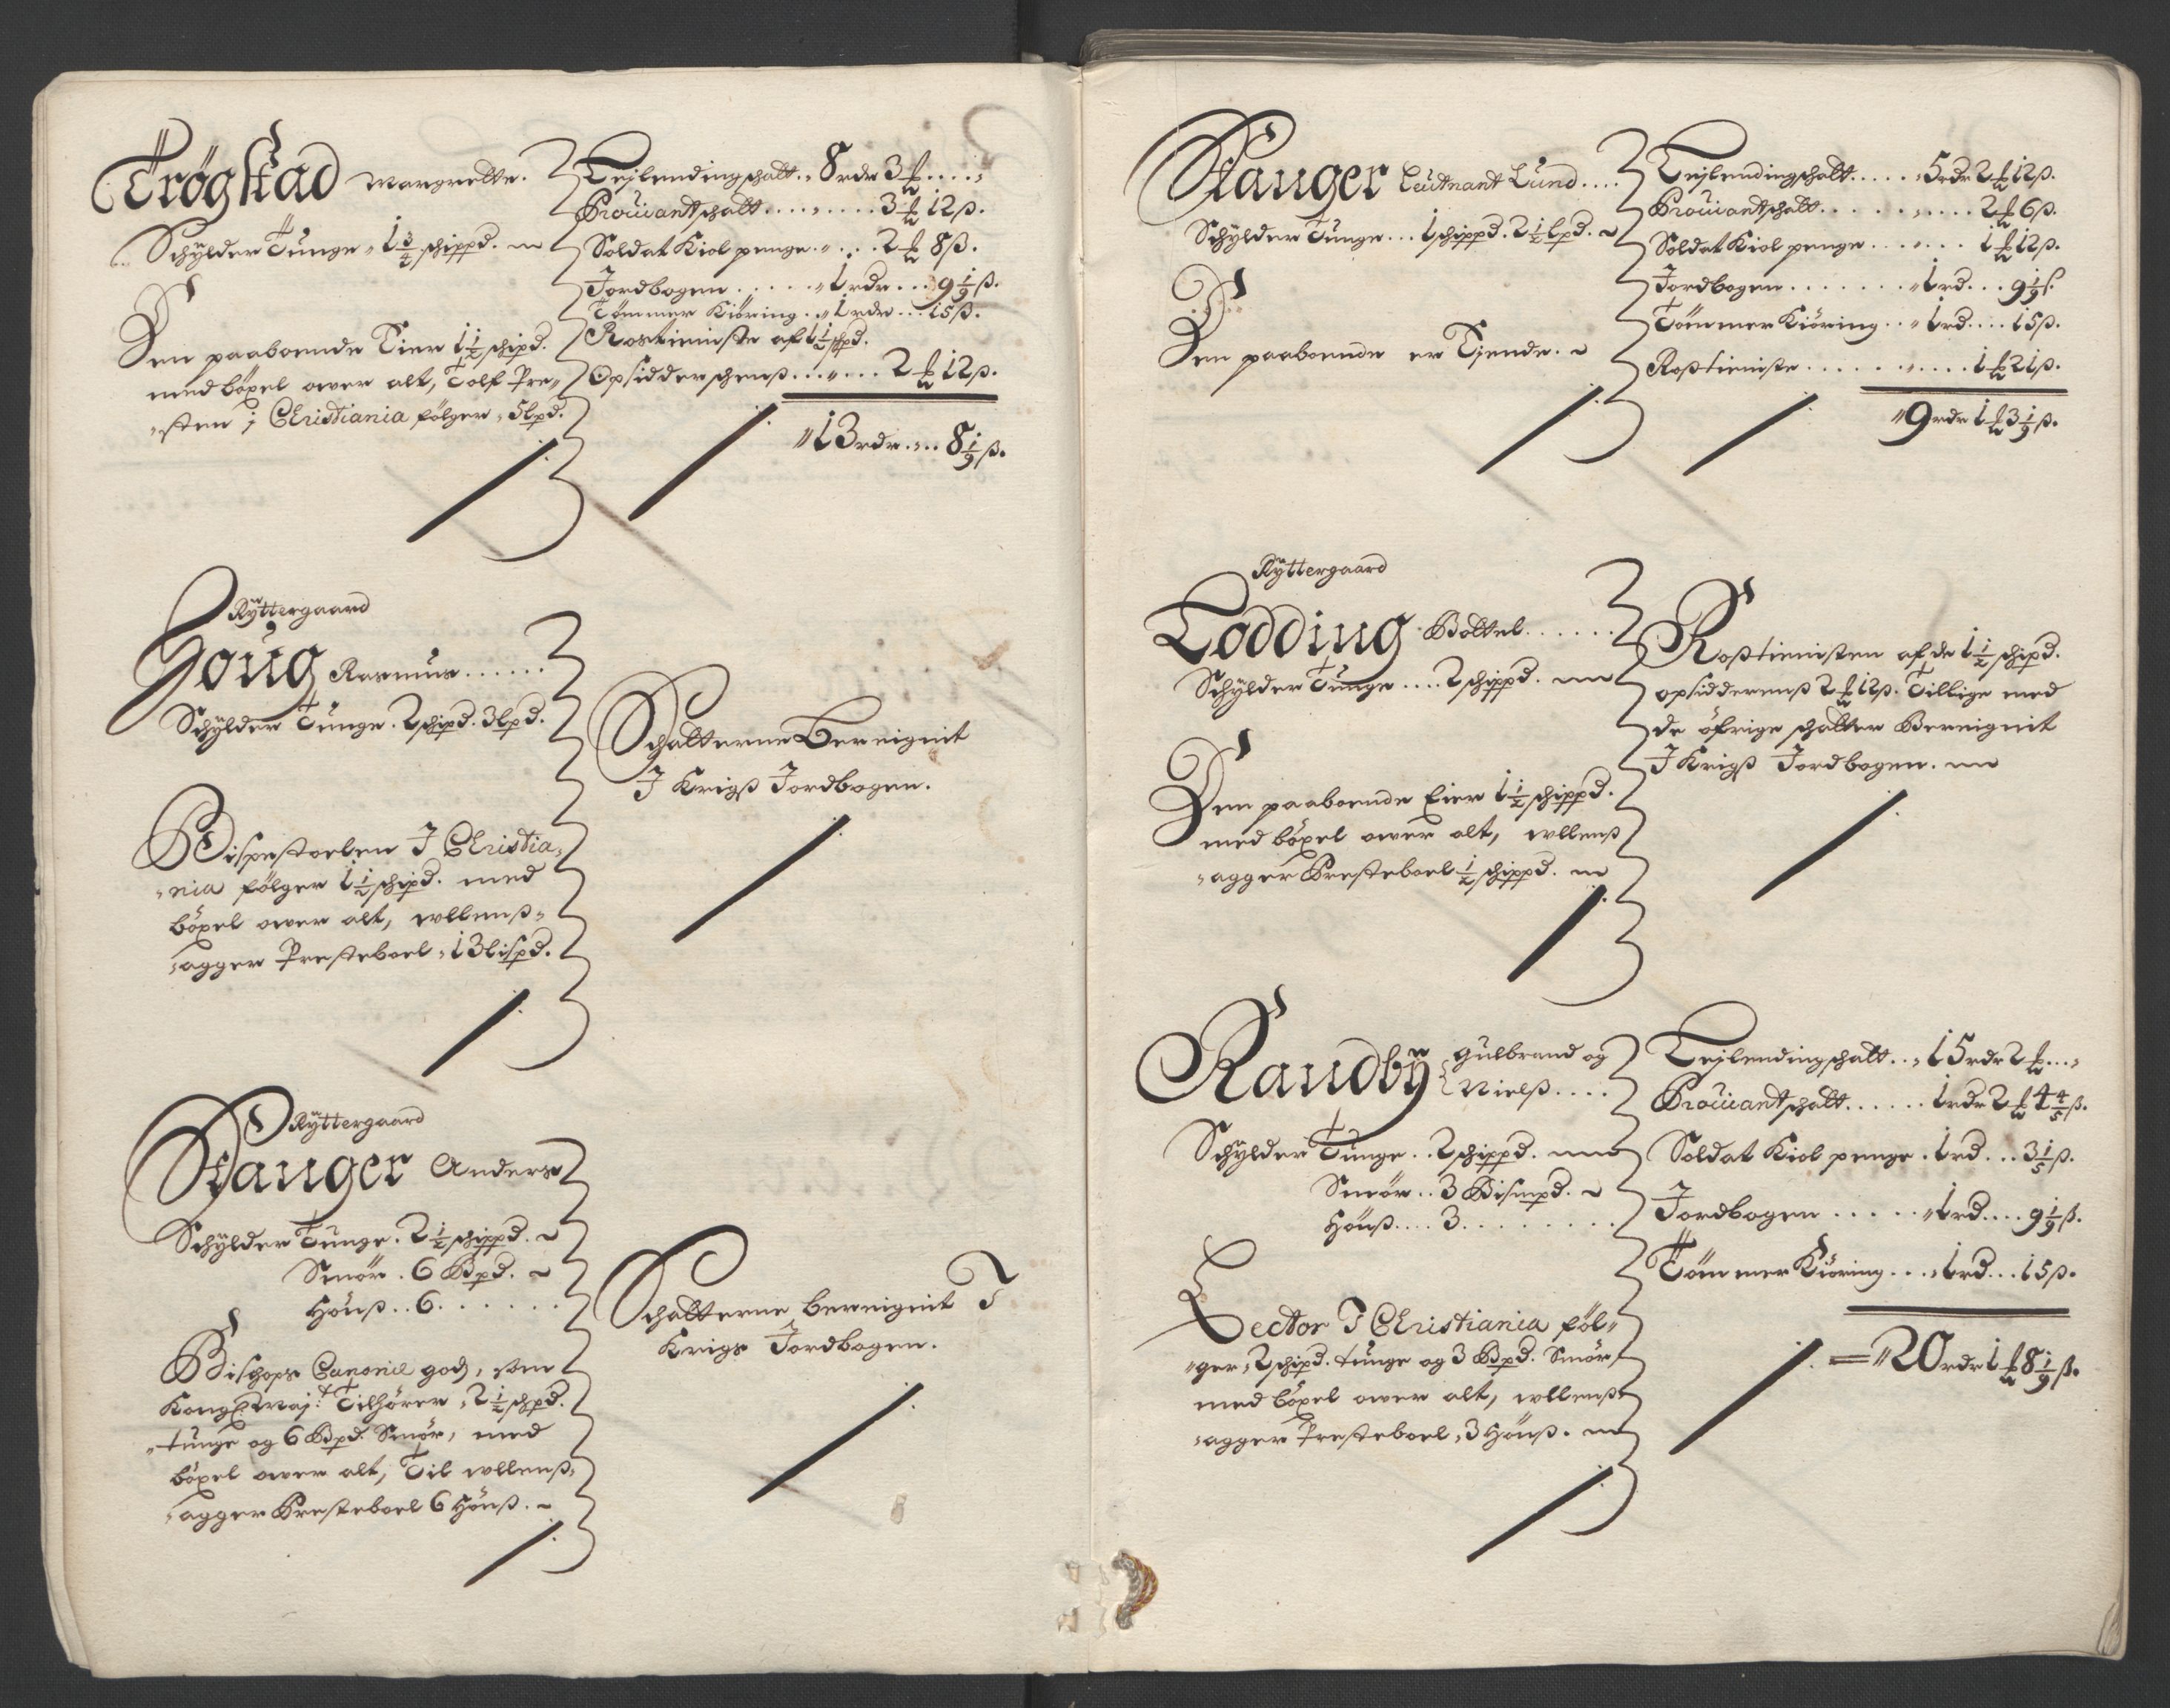 Trögstad Margrette.
Schÿlder Tunge 1 3/4 schippd.
Den paaboende Eier 1 1/2 schipd.
med böxel over alt, Tolf Pre-
sten i Christiania fölger 5 lpd.
Leilendingschatt. 8 rdr 3 ₰
Proviantschatt 3 ₰ 12 ß.
Soldat Kiol penge 2 ₰ 8 ß.
Jordbogen 1 rdr 9 1/9 ß.
Tömmer Kiöring 1 rdr 15 ß.
Rostieniste af 1 1/2 schpd.
Opsidderschenß 2 ₰ 12 ß.
13 rdr 8 1/9 ß.
Rÿttergaard
Houg Rasmus
Schÿlder Tunge. 2 schipd. 3 lpd.
Bispestoelen I Christia-
nia fölger 1 1/2 schipd. med
böxel over alt, Ullenß-
agger Presteboel 13 lispd.
Schatterne Beregnit
I Krigß Jordbogen.
Rÿttergaard
Stanger Anders
Schÿlder Tunge. 2 1/2 schippd.
Smör. 6 Bpd.
Hönß.. 6.
Bischops Canonie godz, som
Kongl: Maj:t Tilhörer, 2 1/2 schpd.
tunge og 6 Bpd. Smör, med
böxel over alt, Til Ullenß-
agger Presteboel 6 Hönß.
Schatterne beregnit I
Krigs Jordbogen.
Stanger Leutnant Lund
Schÿlder Tunge... 1 schippd. 2 1/2 lpd.
Den paaboende er Eiende.
Leilendingschatt 5 rdr 2 ₰ 12 ß.
Proviantschatt 2 ₰ 6 ß.
Soldat Kiol penge 1 ₰ 12 ß.
Jordbogen 1 rd. 9 1/9 ß.
Tömmer Kiöring 1 rd. 15 ß.
Roßtieniste 1 ₰ 21 ß.
9 rdr 1 ₰ 3 1/9 ß.
Rÿttergaard
Lodding Bottel
Schÿlder Tunge 2 schippd.
Den paaboende Eier 1 1/2 schippd.
med böxel over alt, Ullenß
agger Presteboel 1/2 schippd.
Roßtienisten af de 1 1/2 schipd.
opsidderenß 2 ₰ 12 ß. Tillige med
de öfrige schatter Beregnit
I Krigß Jordbogen.
Randbÿ Gulbrand og
Nielß
Schÿlder Tunge.. 2 schippd.
Smör.. 3 Bismpd.
Hönß.... 3
Lector I Christiania föl-
ger, 2 schipd. tunge og 3 Bpd. Smör
med böxel over alt, Ullenß-
agger Presteboel, 3 Hönß.
Leilendingschatt.. 15 rdr 2 ₰
Proviantschatt 1 rdr 2 ₰ 4 4/5 ß.
Soldat Kiol penge. 1 rd... 3 1/5 ß.
Jordbogen 1 rd.... 9 1/9 ß.
Tömmer Kiöring... 1 rd... 15 ß.
20 rdr 1 ₰ 8 1/9 ß.